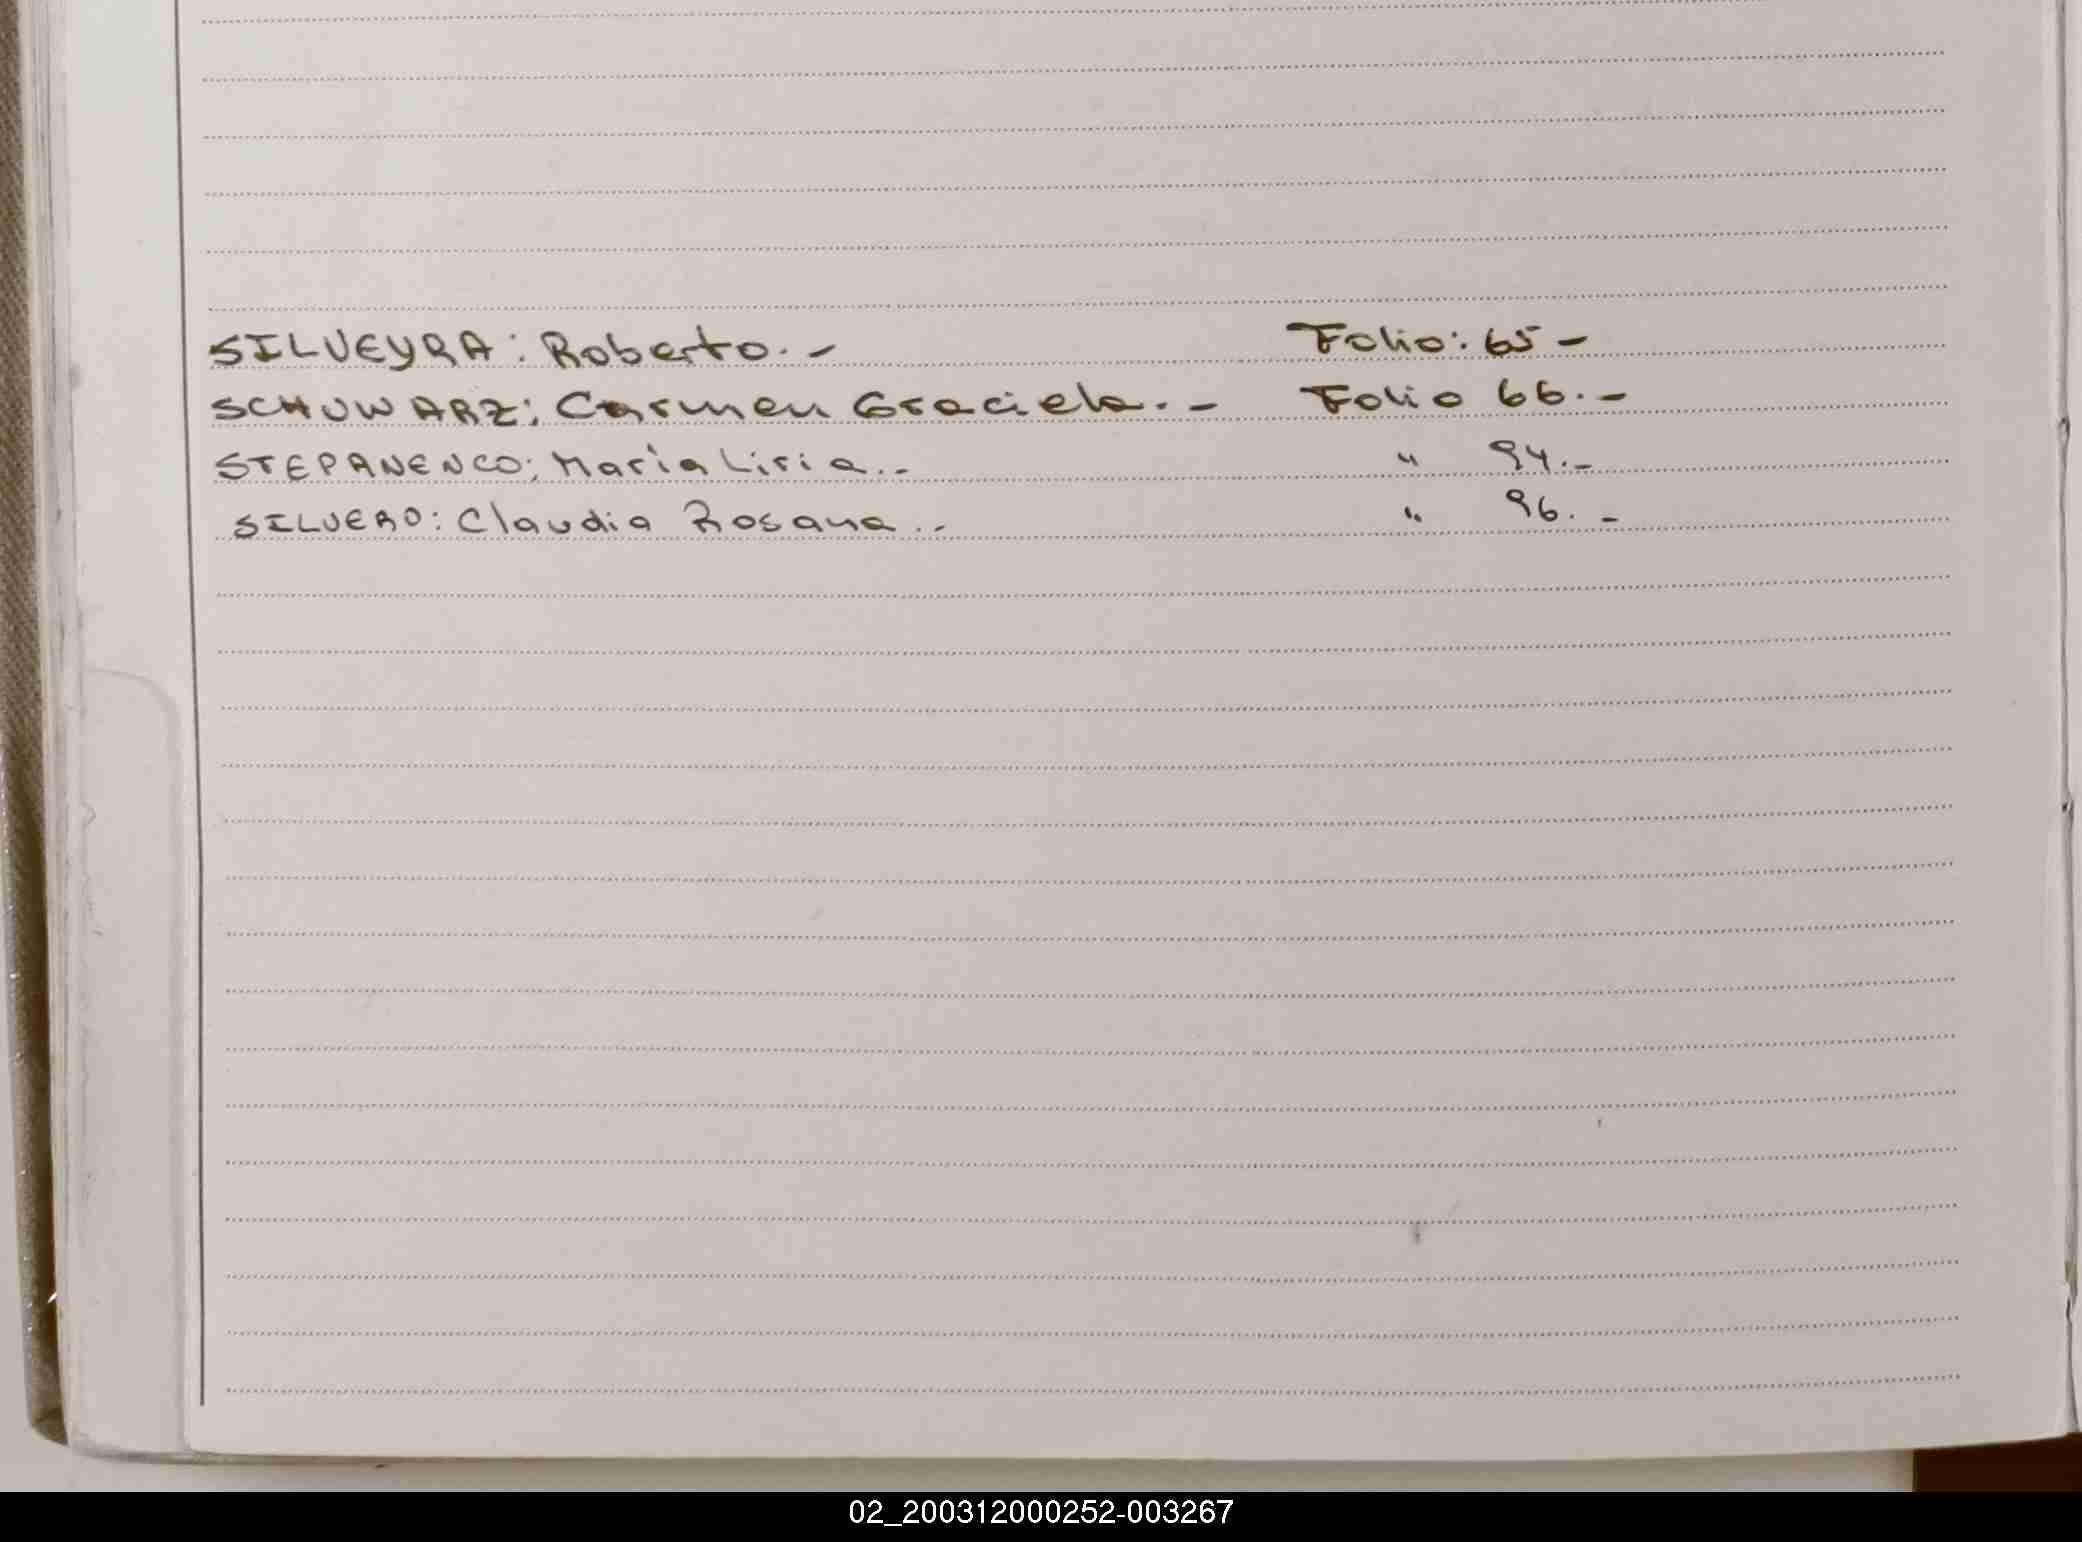 SILVEYRA: Roberto.- Folio: 65-
SCHUWARZ: Carmen Graciela.- Folio 66.-
STEPANENCO: María Liria.- " 94.-
SILVERO: Claudia Rosana.- " 96.-
02_200312000252-003267